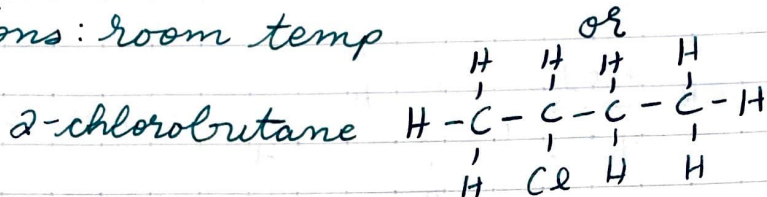 ons: room temp
or
H H H H
2-chlorobutane H-C-C-C-C-H
H Cl H H